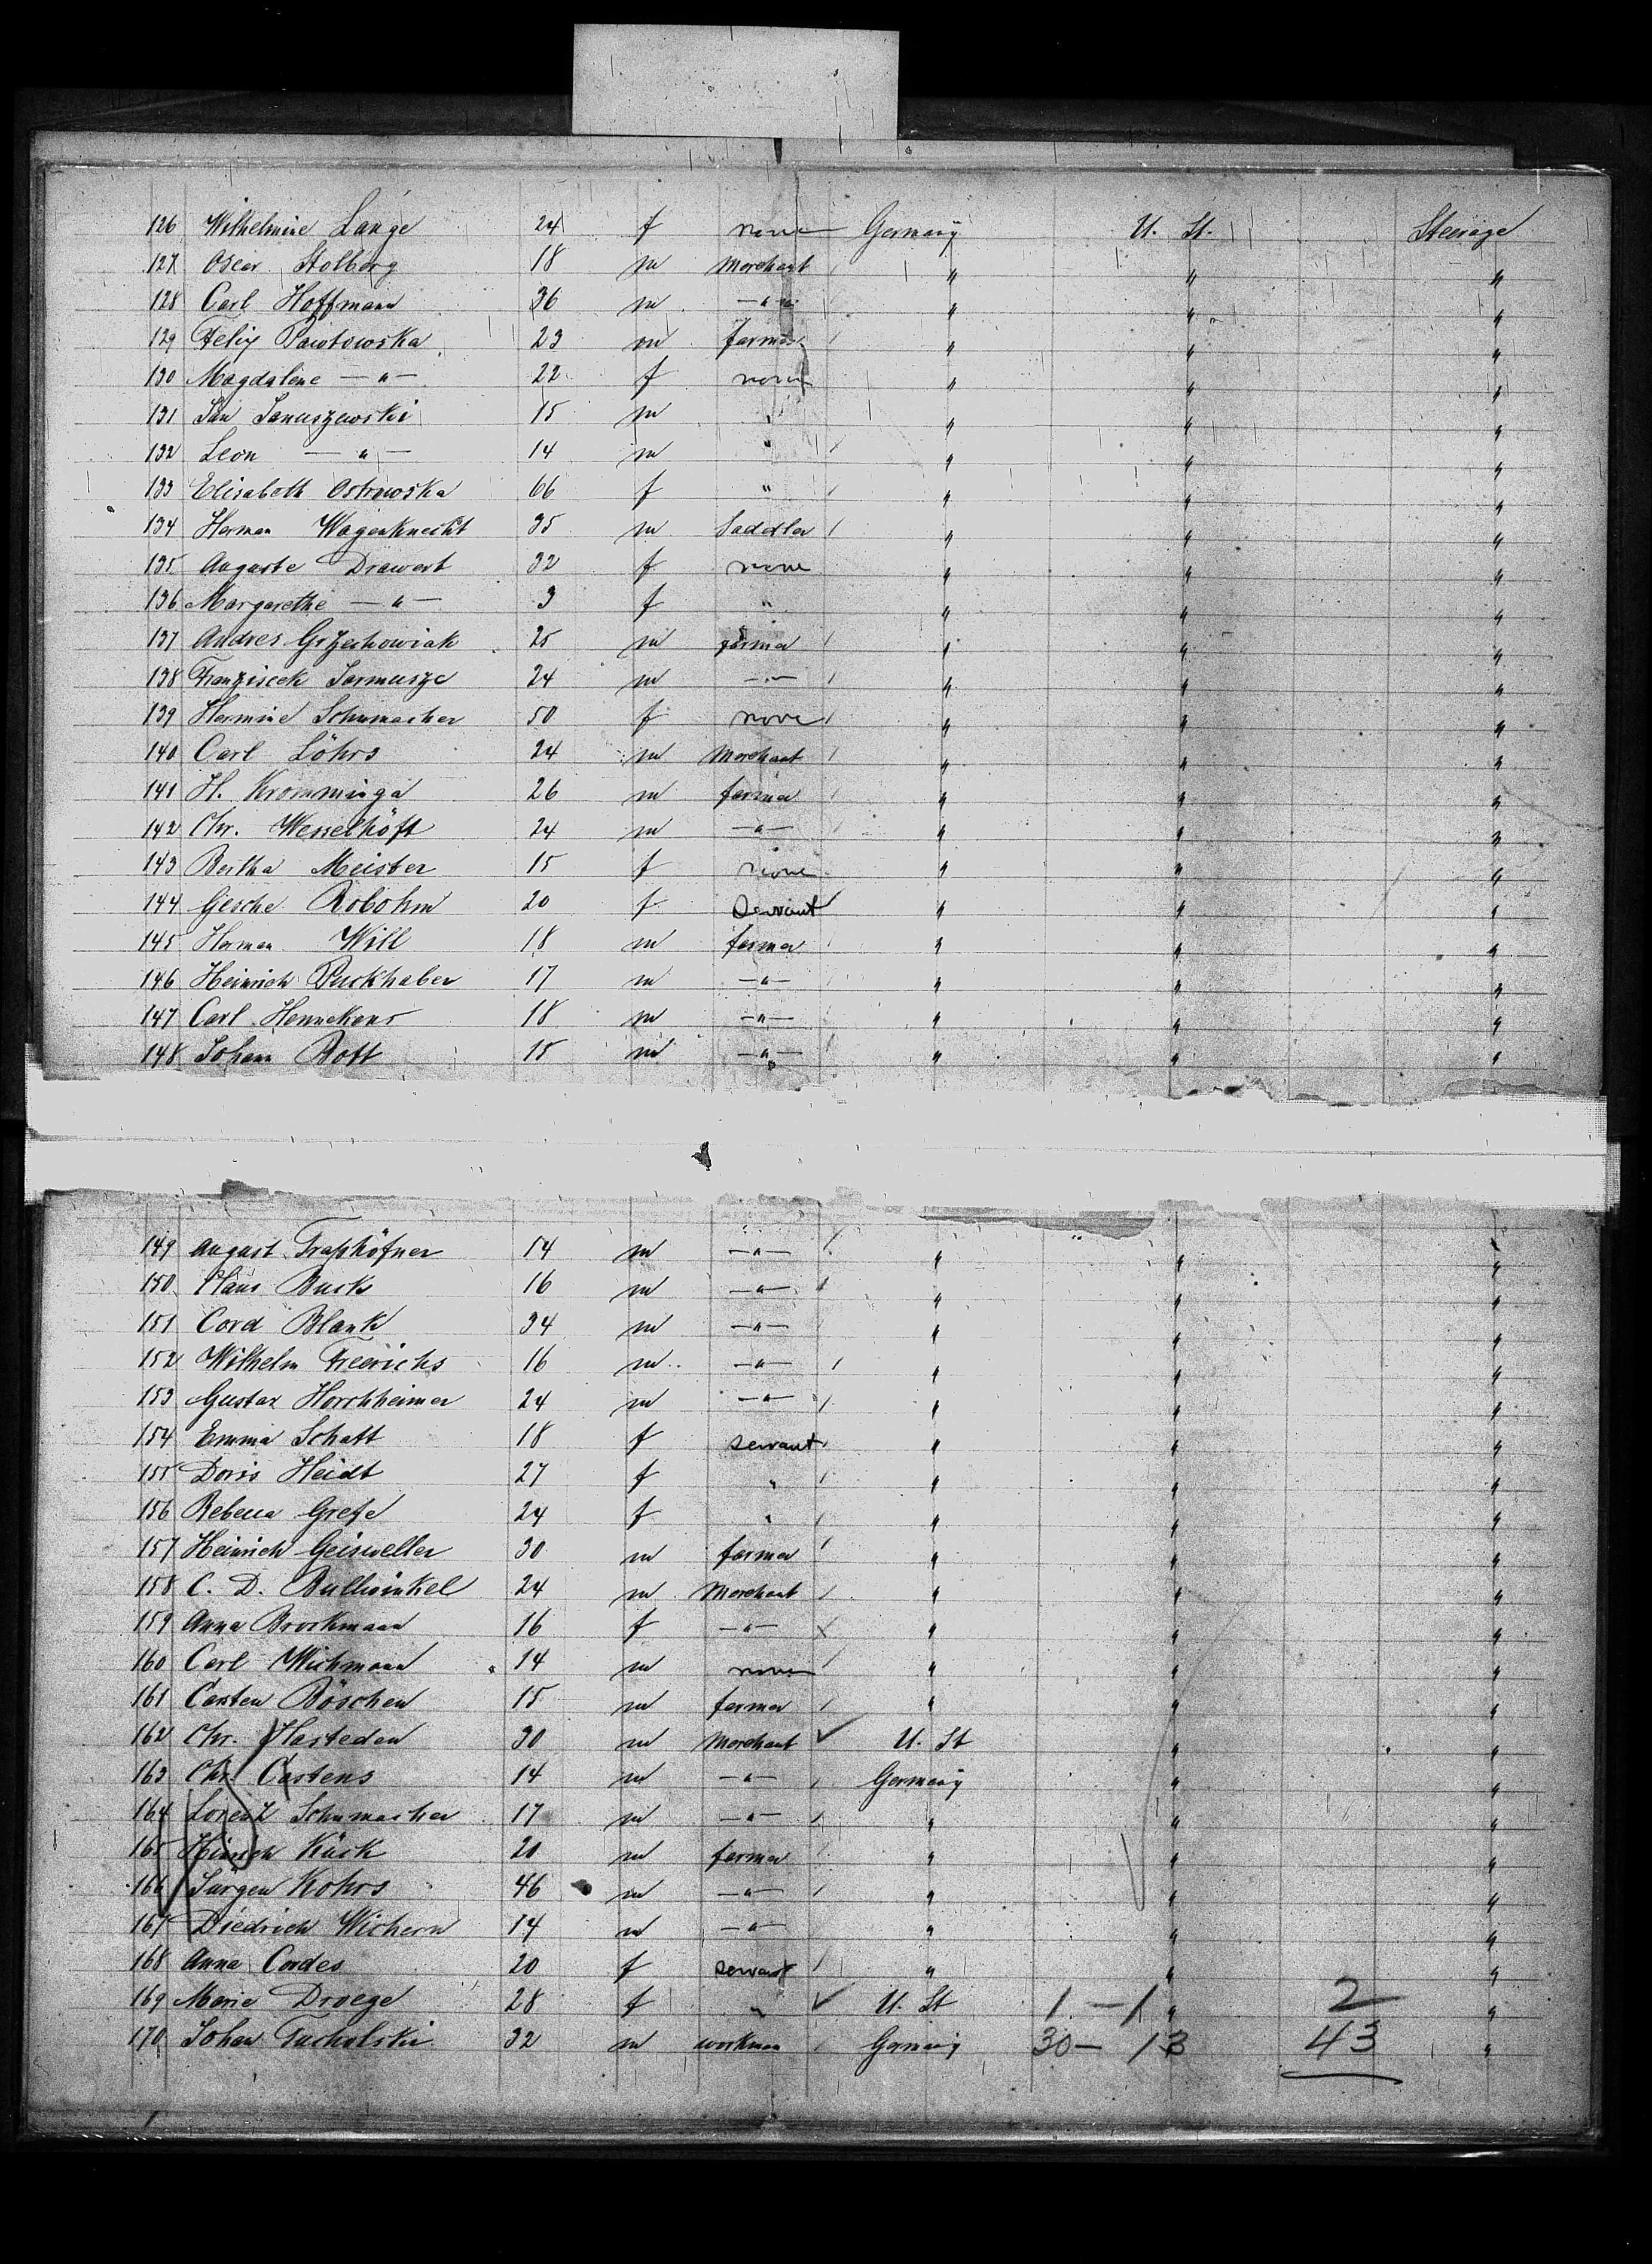 126 Wilhelmine Lange 24 f none Germany U. St. Steerage
127 Oscar Stolberg 18 m Merchant " " "
128 Carl Hoffmann 36 m —"— " " "
129 Felix Pawtowska 23 m farmer " " "
130 Magdalene —"— 22 f none " " "
131 Jan Januszewski 15 m " " " "
132 Leon —"— 14 m " " " "
133 Elisabeth Ostrowska 66 f " " " "
134 Herman Wagenknecht 35 m Saddler " " "
135 Auguste Drawert 32 f none " " "
136 Margarethe —"— 3 f " " " "
137 Andres Grzechowiak 25 m farmer " " "
138 Franziscek Jarmusze 24 m —"— " " "
139 Hermine Schumacher 50 f none " " "
140 Carl Löhrs 24 m Merchant " " "
141 H. Kromminga 26 m farmer " " "
142 Chr. Wesselhöft 24 m —"— " " "
143 Bertha Meister 15 f none " " "
144 Gesche Robohm 20 f Servant " " "
145 Herman Will 18 m farmer " " "
146 Heinrich Puckhaber 17 m —"— " " "
147 Carl Hennekens 18 m —"— " " "
148 Johann Bott 15 m —"— " " "
149 August Traphöfner 14 m —"— " " "
150 Claus Bucks 16 m —"— " " "
151 Cord Blank 34 m —"— " " "
152 Wilhelm Freerichs 16 m —"— " " "
153 Gustav Horchheimer 24 m —"— " " "
154 Emma Schatt 18 f servant " " "
155 Doris Heidt 27 f " " " "
156 Rebecca Grefe 24 f " " " "
157 Heinrich Geisweller 30 m farmer " " "
158 C. D. Bullwinkel 24 m Merchant " " "
159 Anna Brockmann 16 f —"— " " "
160 Carl Wichmann 14 m none " " "
161 Carsten Böschen 15 m farmer " " "
162 Chr. Hasteden 30 m Merchant U. St " "
163 Chr. Carstens 14 m —"— Germany " "
164 Lorenz Schumacher 17 m —"— " " "
165 Hinrich Kück 20 m farmer " " "
166 Jürgen Kohrs 46 m —"— " " "
167 Diedrich Wichern 14 m —"— " " "
168 Anna Cordes 20 f servant " " "
169 Marie Droege 28 f " U. St 1 — 1 " 2 "
170 Johan Tucholski 32 m workman Germany 30 — 13 43 "